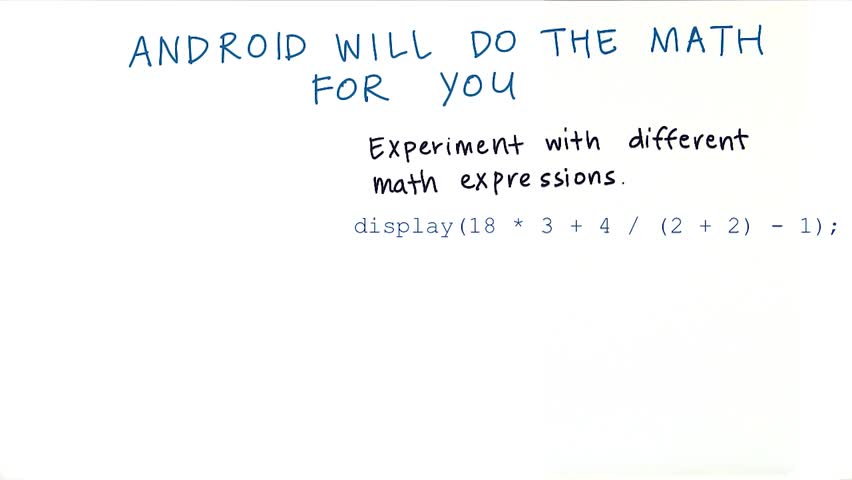 ANDROID WILL DO THE MATH
FOR YOU
Experiment with different
math expressions.
display(18 * 3 + 4 / (2 + 2) - 1);